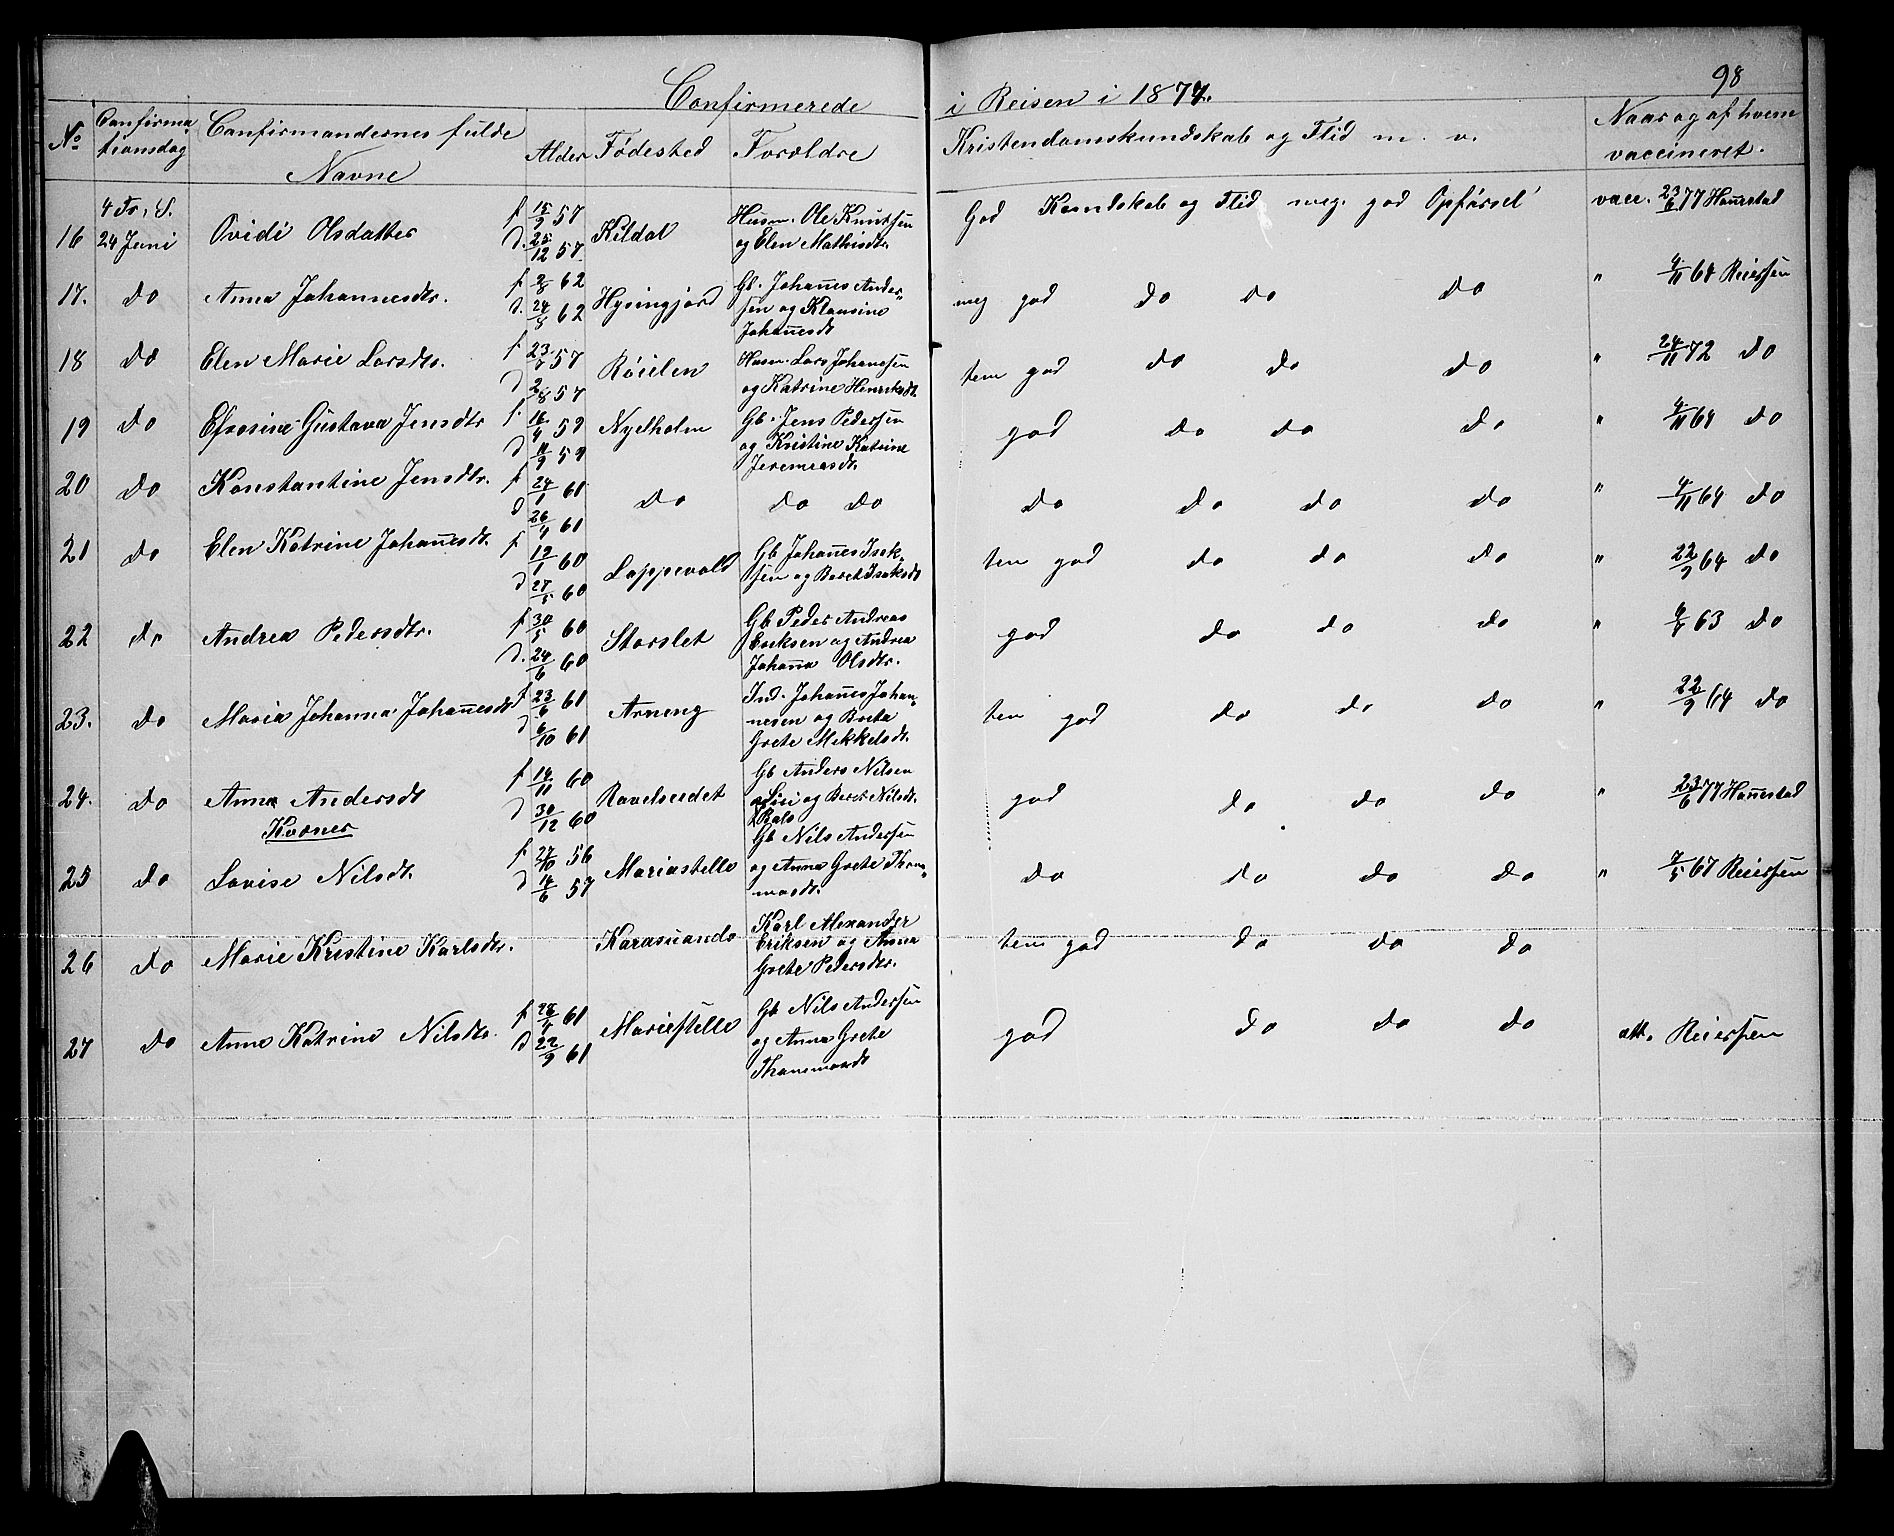 98
Confirmerede i Reisen i 1877.
No Confirmationsdag Confirmandernes fulde Navne Alder Fødested Forældre Kristendomskundskab og Flid m. v. Naar og af hvem vaccineret.
16 4 Tr. S. 24 Juni Ovidi Olsdatter f 15/9 57 d. 25/12 57 Kildal Husm. Ole Knutsen og Elen Mathisdtr. God Kundskab og Flid meg. god Opførsel vacc. 23/6 77 Hannestad
17. do Anna Johannesdtr. f 2/8 62 d. 24/8 62 Hysingjord Gb. Johannes Andersen og Klausine Johannesdt meg god do do do " 4/11 64 Reiersen
18 do Elen Marie Larsdtr. f 23/7 57 d 2/8 57 Røielen Husm. Lars Johannesen og Katrine Henriksdt. tem god do do do " 24/11 72 do
19 do Efrosine Gustava Jensdtr f. 16/4 59 d 11/9 59 Nyelholm Gb. Jens Pedersen og Kristine Katrine Jeremiasdt. god do do do " 4/11 64 do
20 do Konstantine Jensdtr. f 24/1 61 d 26/4 61 do do do do do do do " 4/11 64 do
21 do Elen Katrine Johannesdt. f 19/1 60 d 27/5 60 Loppevold Gb Johannes Isaksen og Beret Isaksdt tem god do do do " 22/9 64 do
22 do Andrea Pedersdtr. f 30/5 60 d. 24/6 60 Storslet Gb Peder Andreas Eriksen og Andrea Johanna Olsdtr. god do do do " 63 do
23. do Maria Johanna Johannesdt f 23/6 61 d 6/10 61 Arneng Ind. Johannes Johannesen og Brita Grete Mikkelsdt. tem god do do do " 22/9 64 do
24. do Anna Andersdt Kvæner f 14/11 60 d 30/12 60 Ravelseidet Gb Anders Nilsen og Beret Nilsdt. god do do do " 23/6 77 Hannestad
25 do Lovise Nilsdt. f 27/10 56 d 14/6 57 Mariastelle Gb Nils Andersen og Anna Grete Thommasdt. do do do do " 7/5 67 Reiersen
26 do Marie Kristine Karlsdtr. Karasuando Karl Alexander Eriksen og Anna Grete Pedersdtr. tem god do do do
27 do Anna Katrine Nilsdtr. f 28/4 61 d 22/9 61 Marieſtelle Gb Nils Andersen og Anna Grete Thommasdt god do do do att. Reiersen